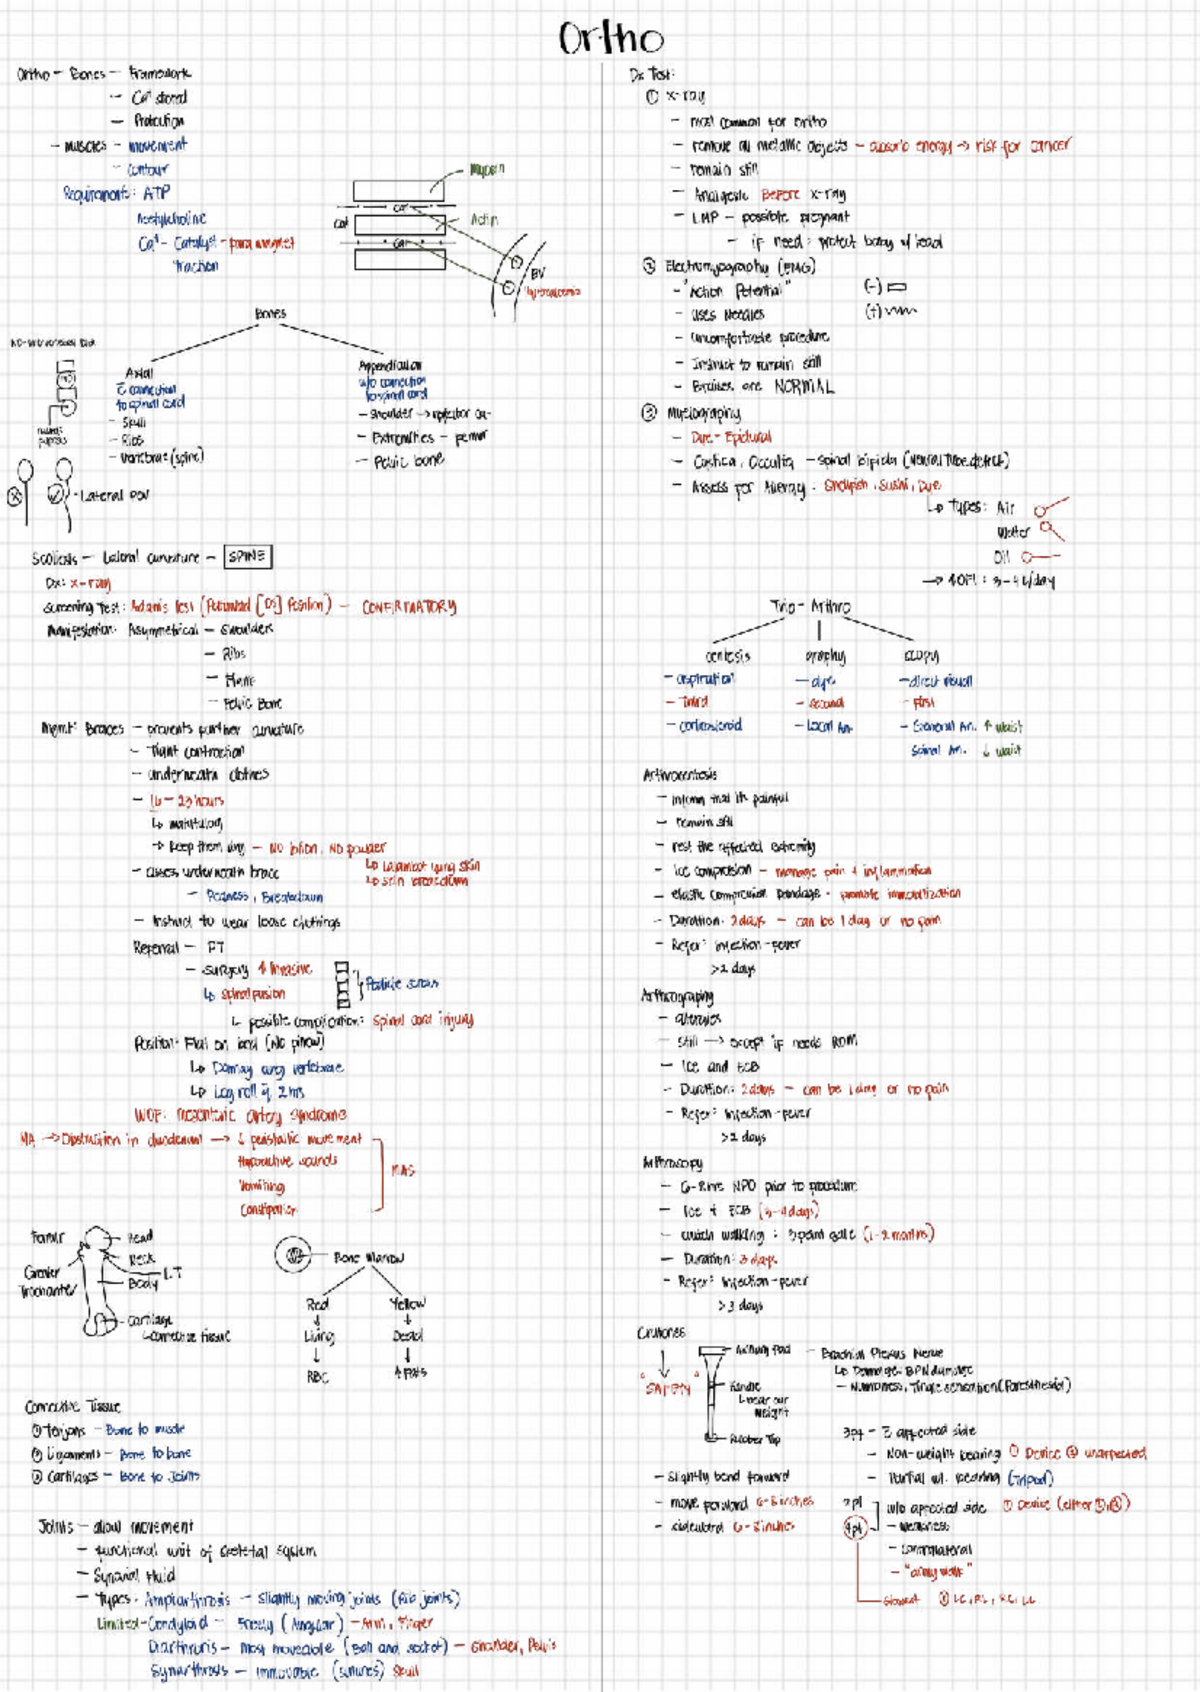 Ortho
Ortho - Bones - Framework
- Ca+ stored
- Protection
- Muscles - movement
- contour
Requirements: ATP
Acetylcholine
Ca+ - Catalyst - para magnet
Traction
Myosin
Ca+
Ca+
Actin
Ca+
BV
Bones
Axial
c̄ connection
to spinal cord
- Skull
- Ribs
- Vertebrae (spine)
Appendicular
w/o connection
to spinal cord
- Shoulder
- Extremities - Femur
- Pelvic bone
- Lateral POV
Scoliosis - Lateral curvature - SPINE
Dx: X-ray
Screening Test: Adam's Test (Forward [DS] Position) - CONFIRMATORY
Manifestation: Asymmetrical - Shoulders
- Ribs
- Plane
- Pelvic Bone
Mgmt: Braces - prevents further curvature
- Tight contraction
- underneath clothes
- 16 - 23 hours
↳ matutulog
→ keep them dry - NO lotion, NO powder
↳ Lalambot yung skin
↳ skin breakdown
- assess underneath brace
- Redness, Breakdown
- Instruct to wear loose clothings
Referral - PT
- surgery ↑ Invasive
↳ Spinal fusion
Pedicle screws
↳ possible complication: spinal cord injury
Position: Flat on bed (No pillow)
↳ Damay ang vertebrae
↳ Log roll q̄ 2 hrs
WOF: mesenteric artery syndrome
MA → Obstruction in duodenum → ↓ peristaltic movement
Hypoactive sounds
Vomiting
Constipation
MAS
Femur
Head
Neck
L.T
Greater
Trochanter
Body
Cartilage
↳ connective tissue
Bone Marrow
Red
Yellow
Living
Dead
RBC
↑ Fats
Connective Tissue
① Tendons - Bone to muscle
② Ligaments - Bone to bone
③ Cartilages - Bone to Joints
Joints - allow movement
- functional unit of skeletal system
- Synovial Fluid
- Types: Ampiarthrosis - slightly moving joints (Rib joints)
Limited - Condyloid - Freely (Angular) - Arm, Finger
Diarthrosis - most moveable (Ball and socket) - Shoulder, Pelvis
Synarthrosis - immovable (sutures) Skull
Dx Test:
① X-ray
- most common for ortho
- remove all metallic objects - absorb energy → risk for cancer
- remain still
- Analgesic Before X-ray
- LMP - possible pregnant
- if need: protect baby w/ lead
② Electromyography (EMG)
- "Action Potential"
(-)
- uses Needles
(+)
- uncomfortable procedure
- Instruct to remain still
- Bruises are NORMAL
③ Myelography
- Dye - Epidural
- Cystica, Occulta - spinal bifida (Neural Tube defect)
- Assess for Allergy: Shellfish, Sushi, Dye
↳ Types: Air
Water
Oil
→ ↑OFI: 3-4 L/day
Trio - Arthro
centesis
graphy
scopy
- aspiration
- dye
- direct visual
- Third
- second
- First
- corticosteroid
- Local An.
- General An. ↑ waist
Spinal An. ↓ waist
Arthrocentesis
- inform that it's painful
- remain still
- rest the affected extremity
- ice compression - manage pain & inflammation
- elastic compression bandage - promote immobilization
- Duration: 2 days - can be 1 day or no pain
- Refer: Infection - fever
> 2 days
Arthrography
- allergies
- Still → except if needs ROM
- Ice and ECB
- Duration: 2 days - can be 1 day or no pain
- Refer: Infection - fever
> 2 days
Arthroscopy
- 6-8 hrs NPO prior to procedure
- Ice & ECB (3-4 days)
- crutch walking: 3 point gait (1-2 months)
- Duration: 3 days
- Refer: Infection - fever
> 3 days
Crutches
"SAFETY"
Axillary Pad - Brachial Plexus Nerve
↳ Damage: BPN damage
- Numbness, Tingle sensation (Paresthesia)
Handle
↳ bear our
weight
Rubber Tip
- slightly bend forward
- move forward 6-8 inches
- sideward 6-8 inches
3pt - c̄ affected side
- Non-weight bearing ① Device ② unaffected
- Partial wt. bearing (Tripod)
2pt
4pt
w/o affected side
- weakness
- Contralateral
- "army walk"
slowest